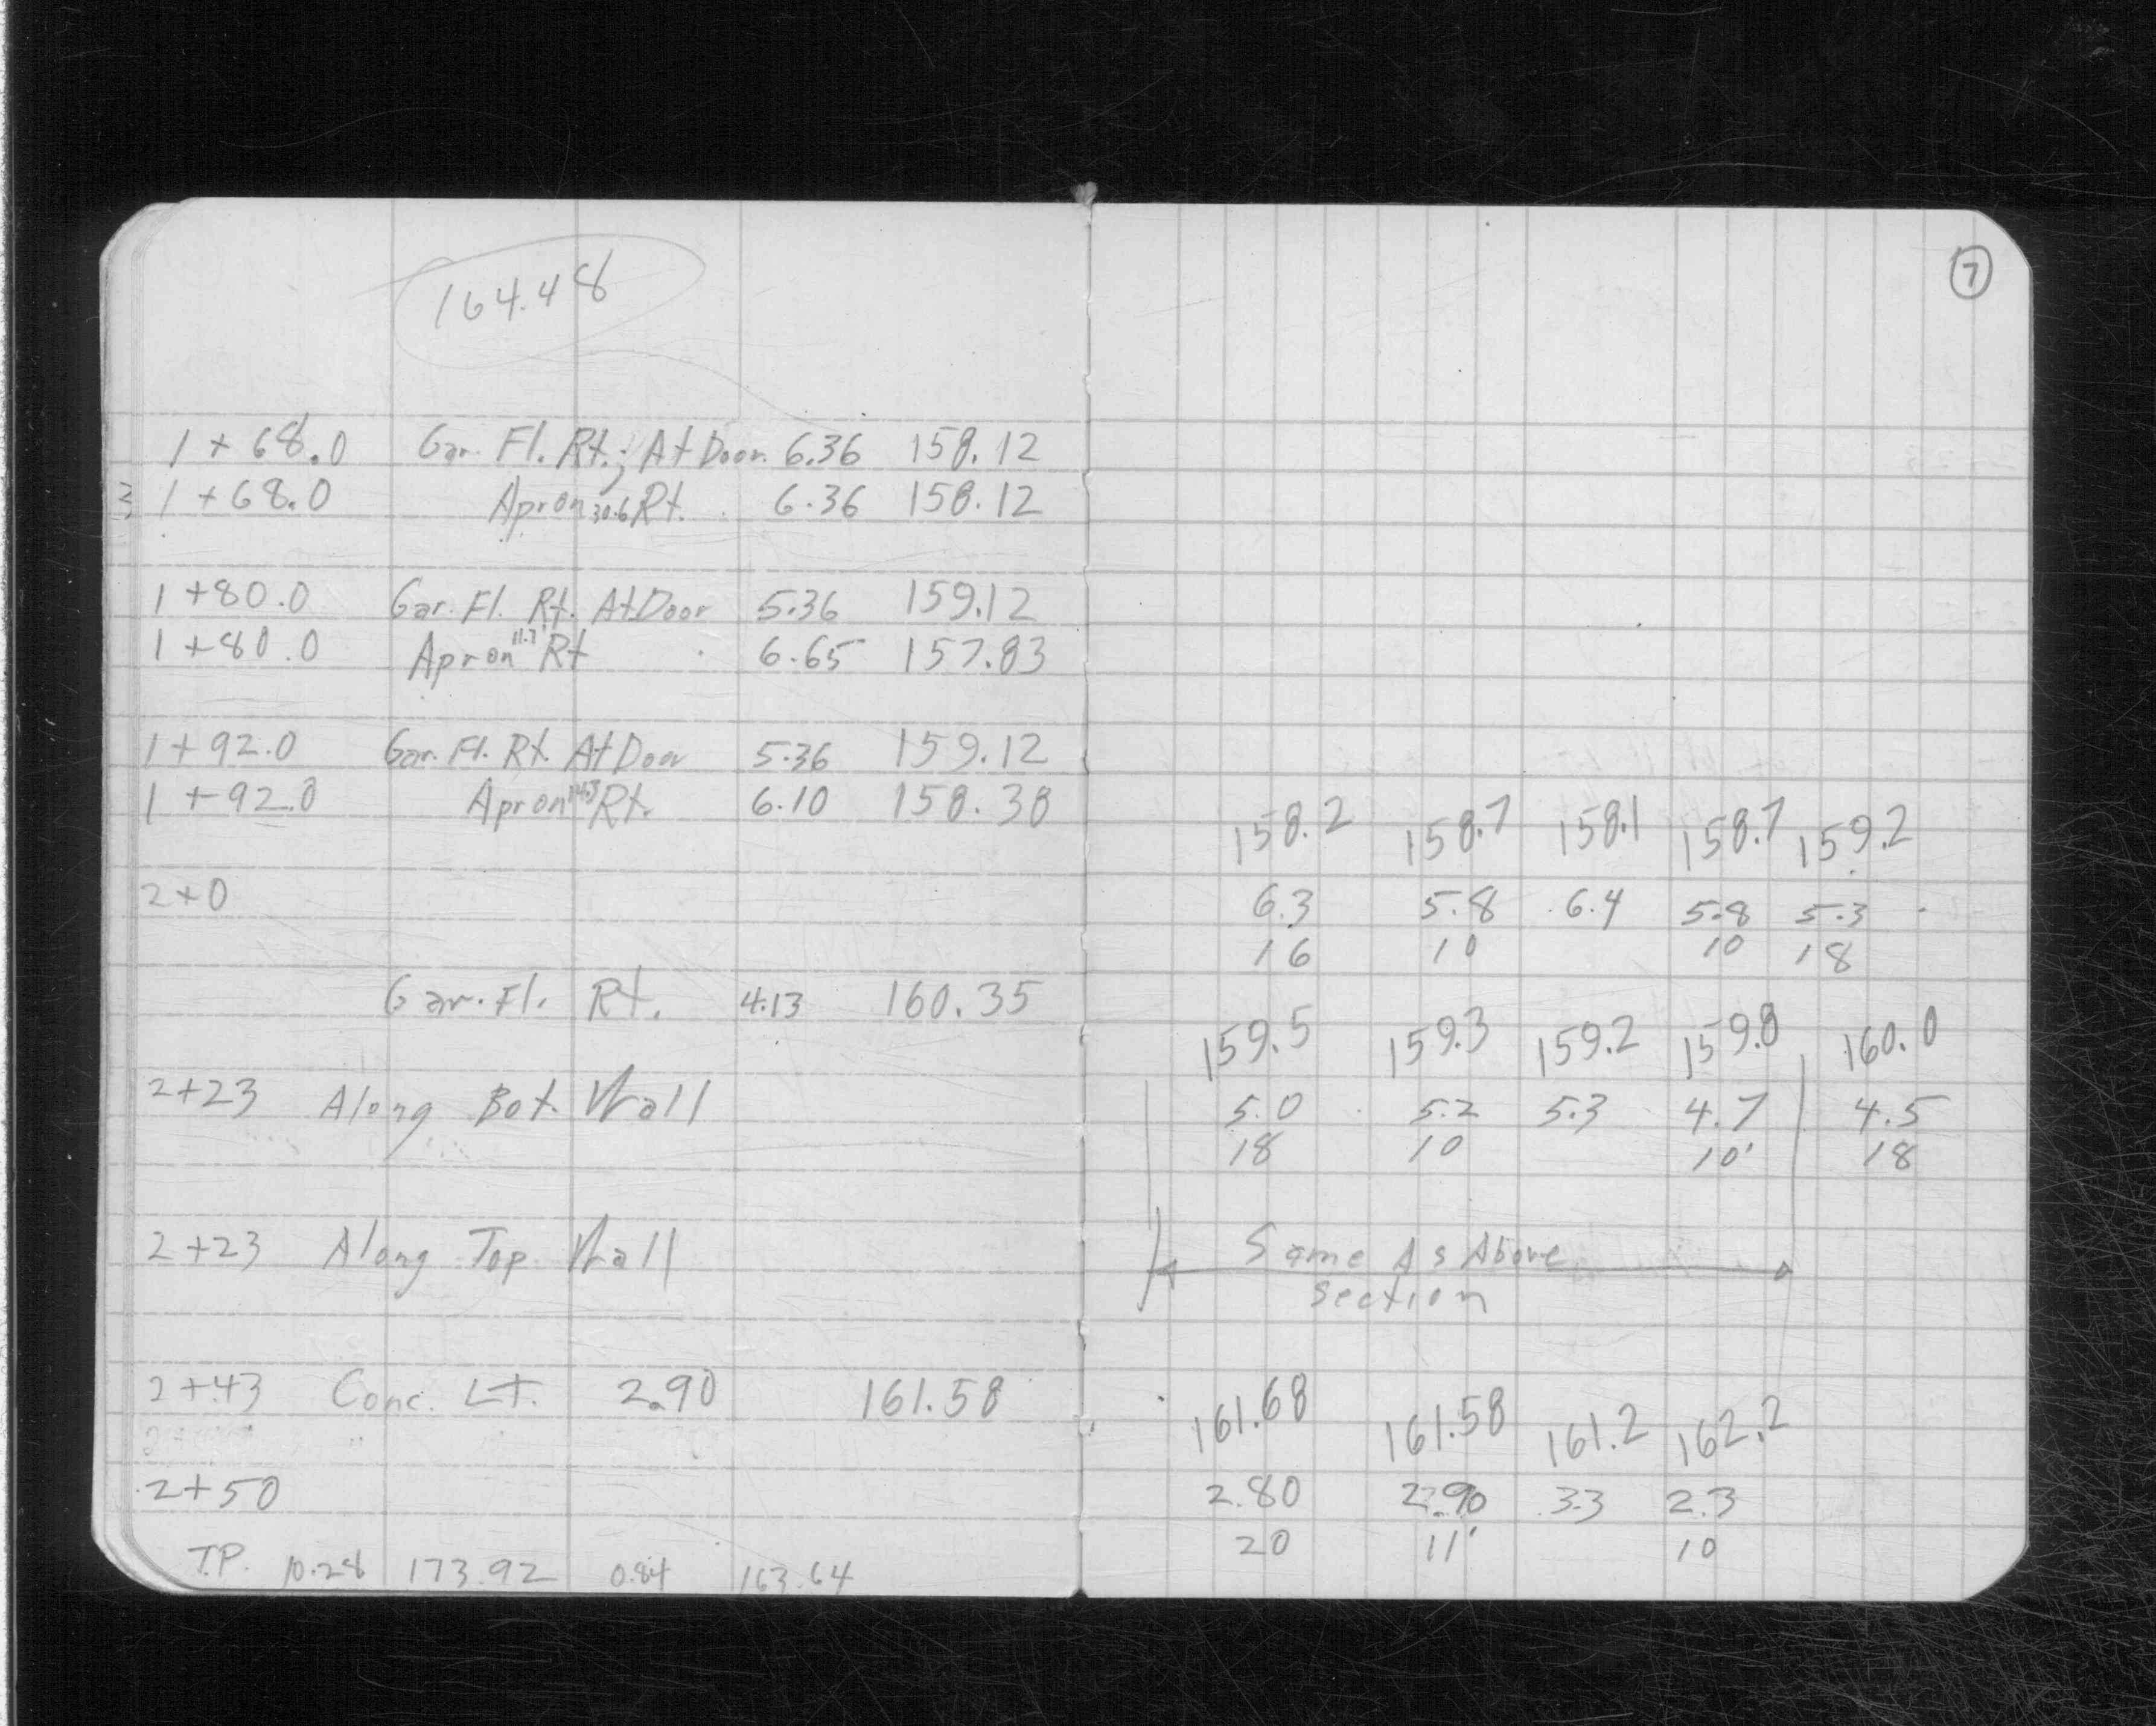 164.48
1+68.0 Gar. Fl. Rt.; At Door. 6.36 158.12
1+68.0 Apron 30.6 Rt. 6.36 158.12
1+80.0 Gar. Fl. Rt. At Door 5.36 159.12
1+80.0 Apron 11.7' Rt 6.65 157.83
1+92.0 Gar. Fl. Rt. At Door 5.36 159.12
1+92.0 Apron Rt. 6.10 158.38
2+0
Gar. Fl. Rt. 4.13 160.35
2+23 Along Bot. Wall
2+23 Along Top Wall
2+43 Conc. Lt. 2.90 161.58
2+50
T.P. 10.28 173.92 0.84 163.64
7
158.2 158.7 158.1 158.7 159.2
6.3 5.8 6.4 5.8 5.3
16 10 10 18
159.5 159.3 159.2 159.8 160.0
5.0 5.2 5.3 4.7 4.5
18 10 10' 18
Same As Above
Section
161.68 161.58 161.2 162.2
2.80 2.90 3.3 2.3
20 11' 10